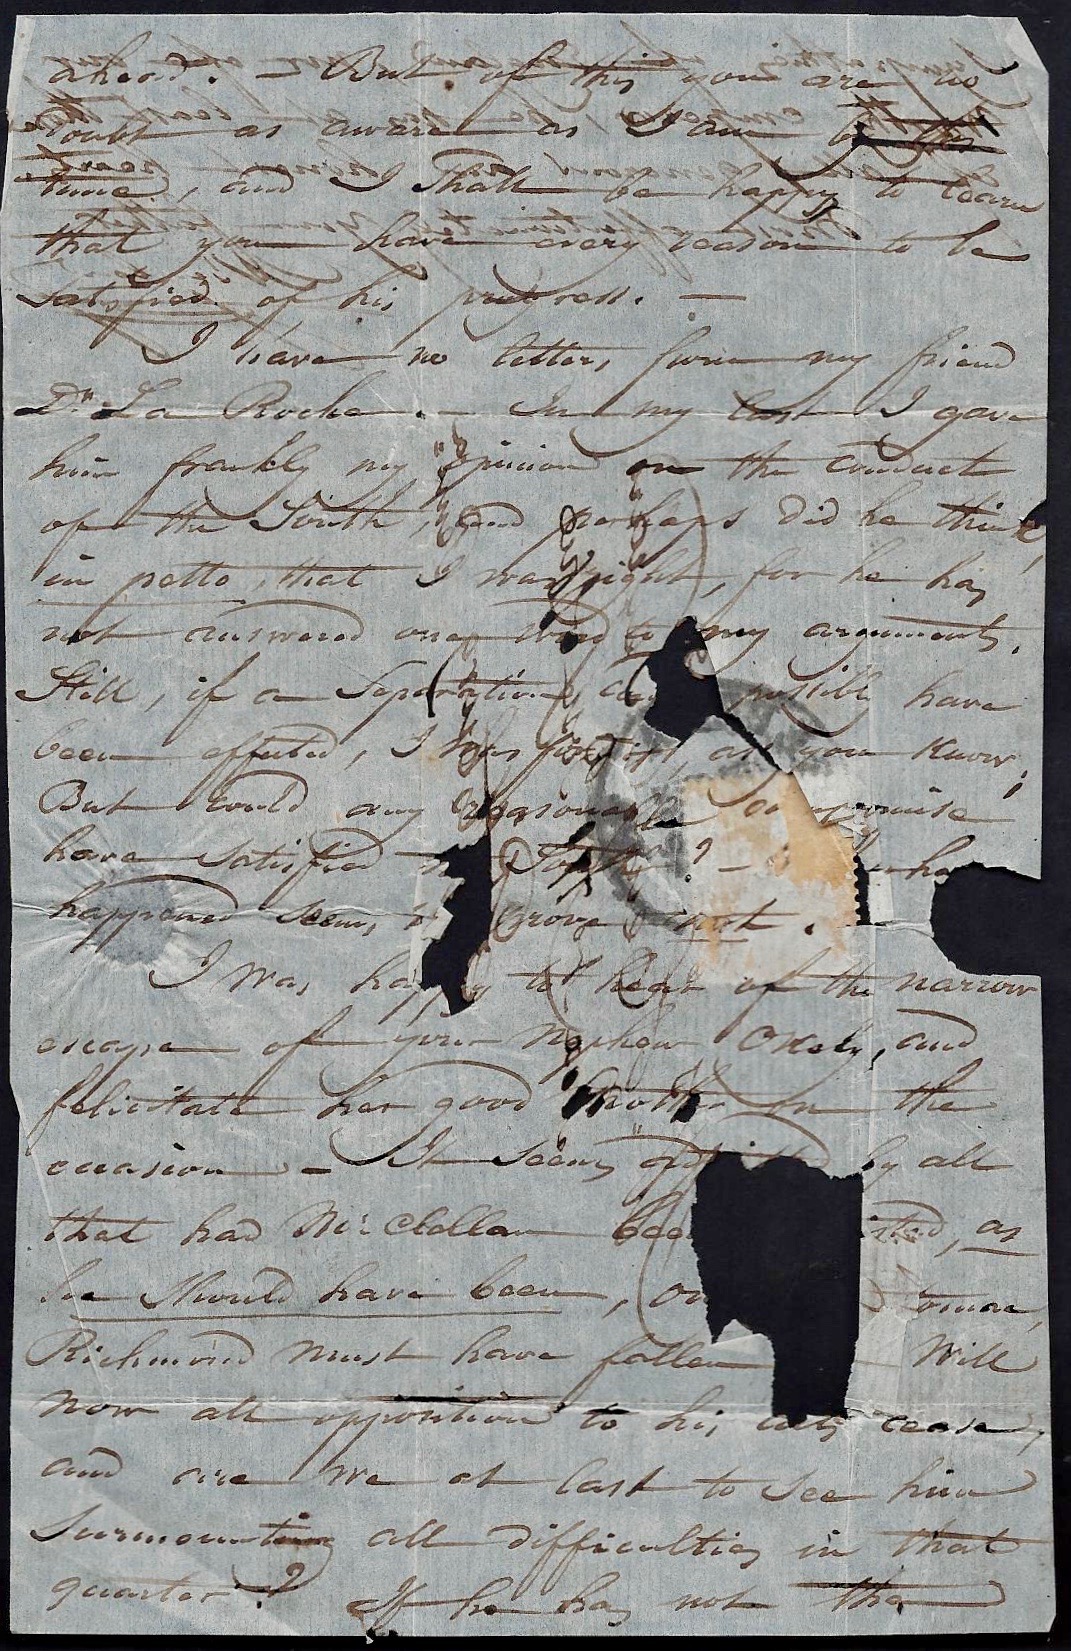 ahead. — But of this you are no
doubt as aware as I am by this
time, and I shall be happy to learn
that you have every reason to be
satisfied of his progress. —
I have no letters from my friend
Dr. La Roche. — In my last I gave
him frankly my opinion on the conduct
of the South, and perhaps did he think,
in petto, that I was right, for he has
not answered one word to my arguments.
Still, if a Separation could possibly have
been effected, I was for it, as you know;
But would any reasonable compromise
have satisfied the South? — wha
happened seems to prove not.
I was happy to hear of the narrow
escape of your nephew Oxely, and
felicitate her good Mother on the
occasion — It seems admitted by all
that had McClellan bee sted, as
he should have been, on time,
Richmond must have fallen — Will
now all opposition to his acts cease,
and are we at last to see him
surmounting all difficulties in that
quarter? If he has not the